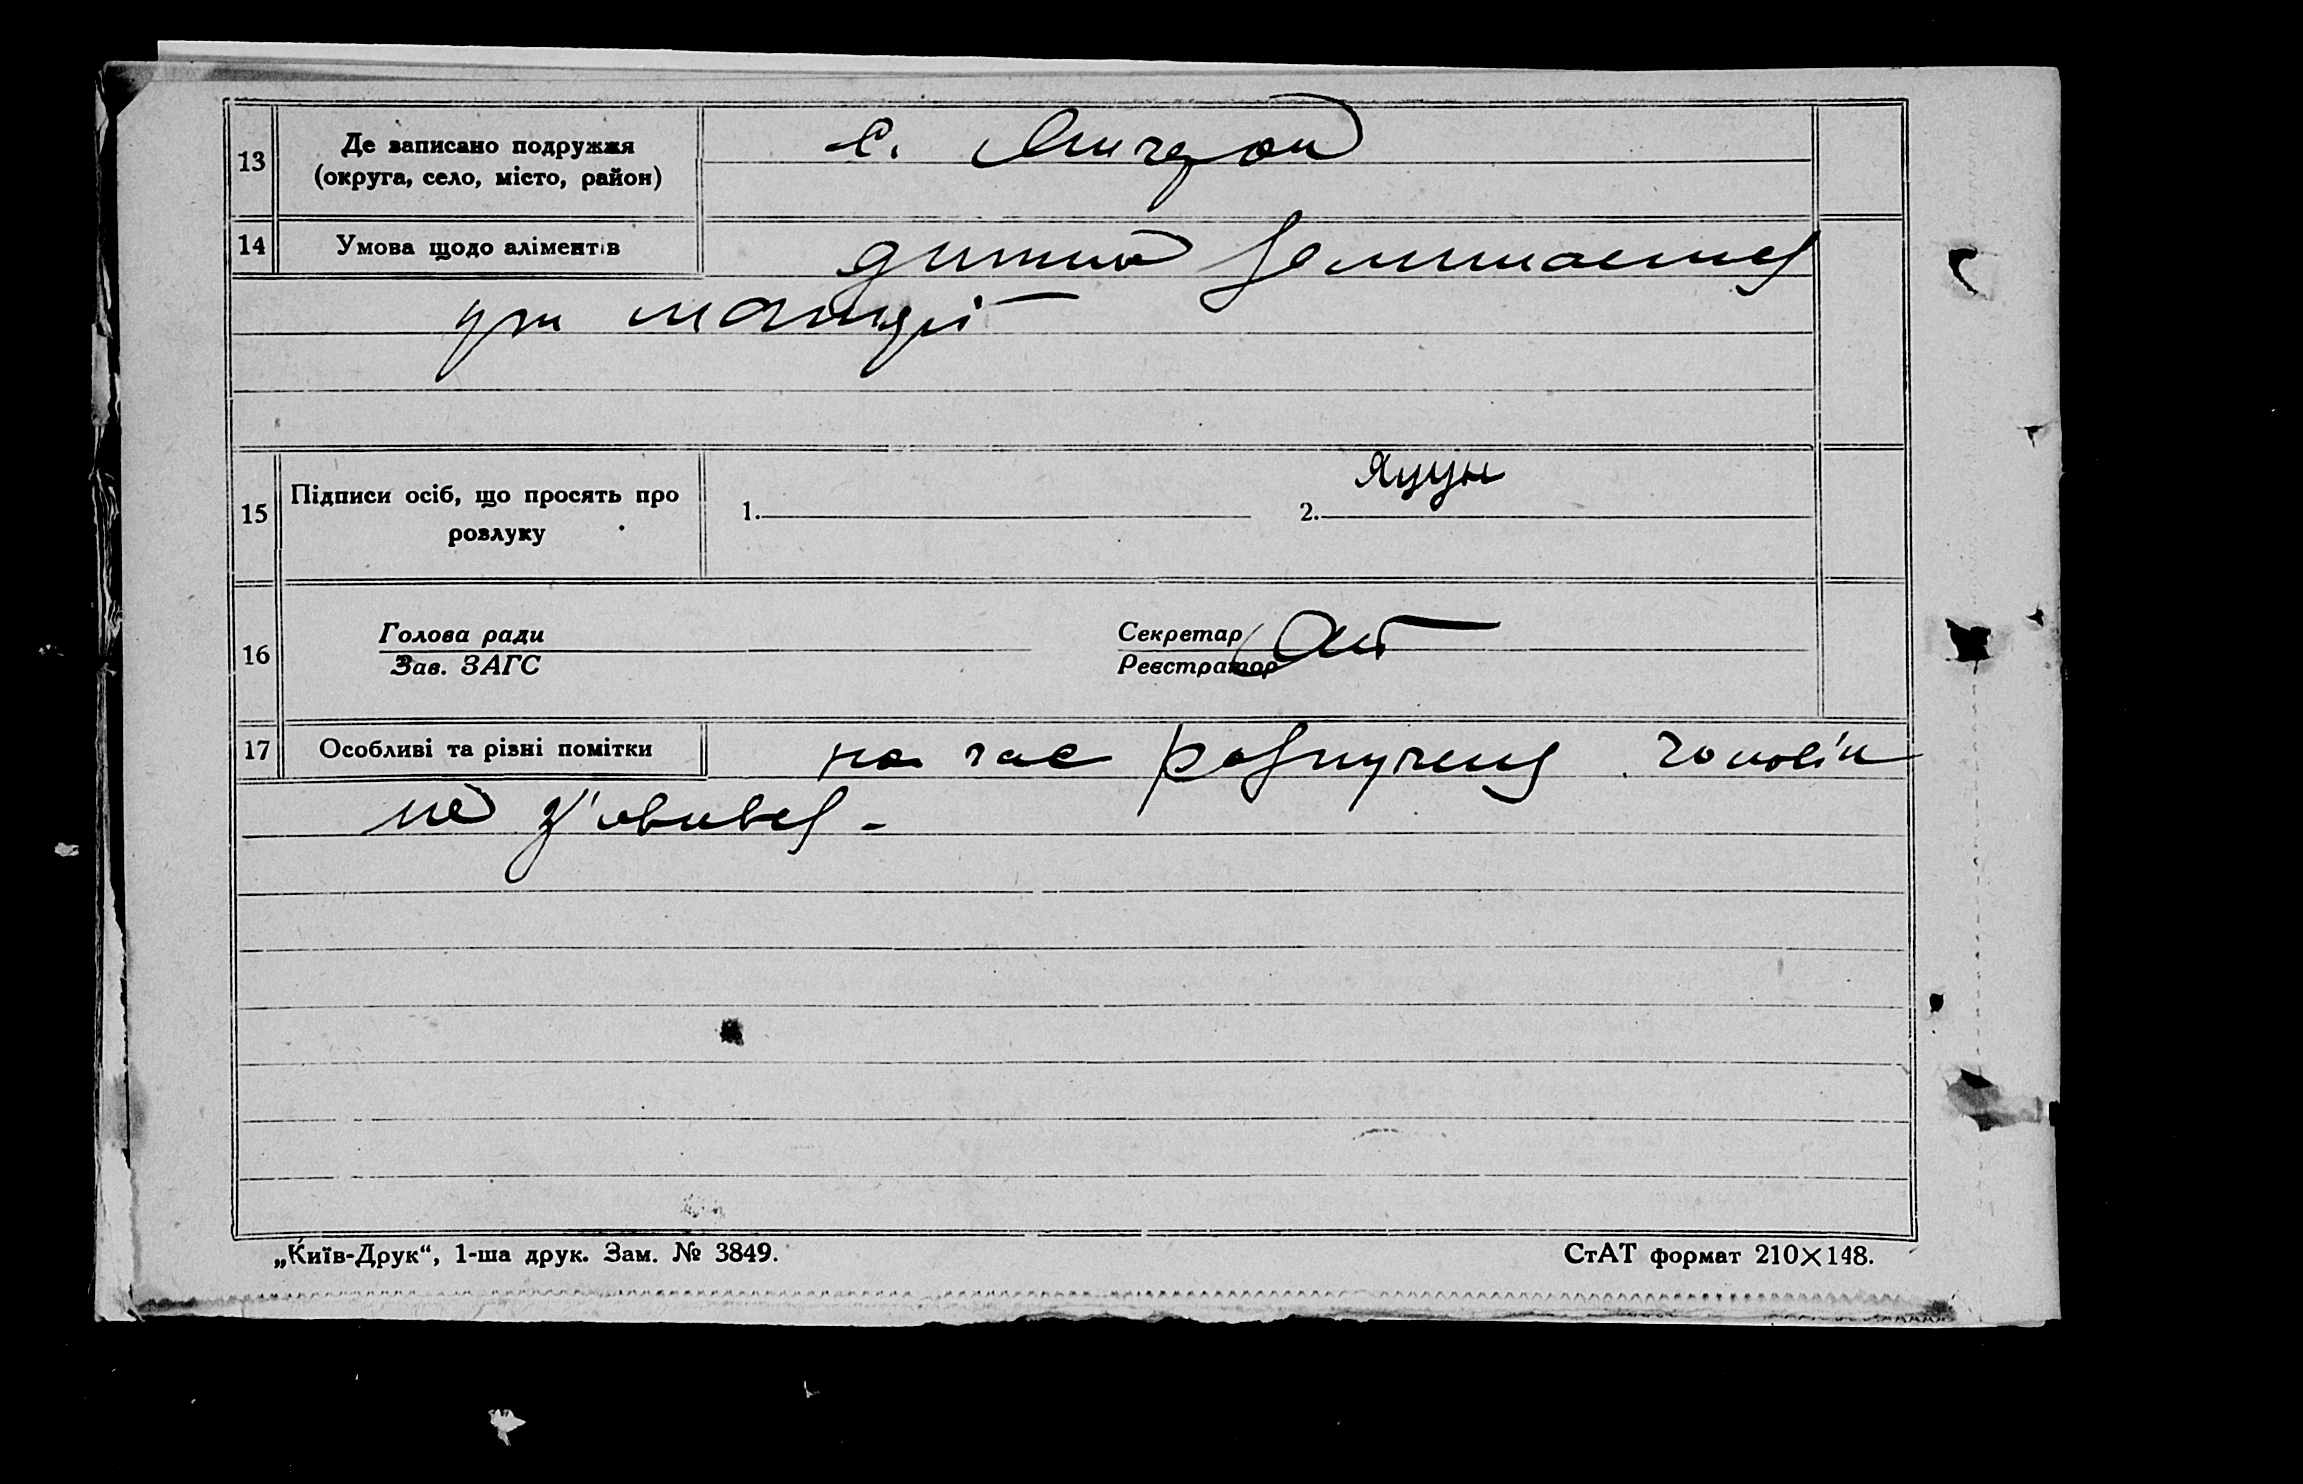 13 Де записано подружжя
(округа, село, місто, район)
с.
14 Умова щодо аліментів дитина залишається
при матері
15 Підписи осіб, що просять про
розлуку
1. 2. Яцун
16 Голова ради Секретар
Зав. ЗАГС Реєстратор
17 Особливі та різні помітки на час розлучення чоловік
не з'явився -
„Київ-Друк“, 1-ша друк. Зам. № 3849. СтАТ формат 210×148.